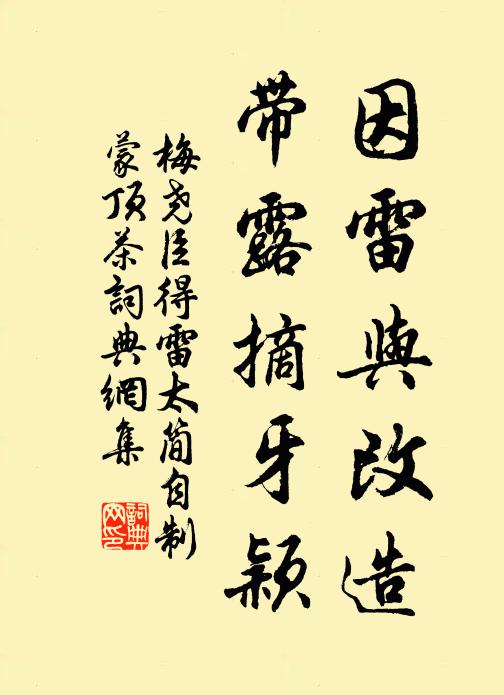 因雷與改造
带露摘牙穎
梅尧臣得雷太简自制
蒙顶茶詞典網集
詞典
网印